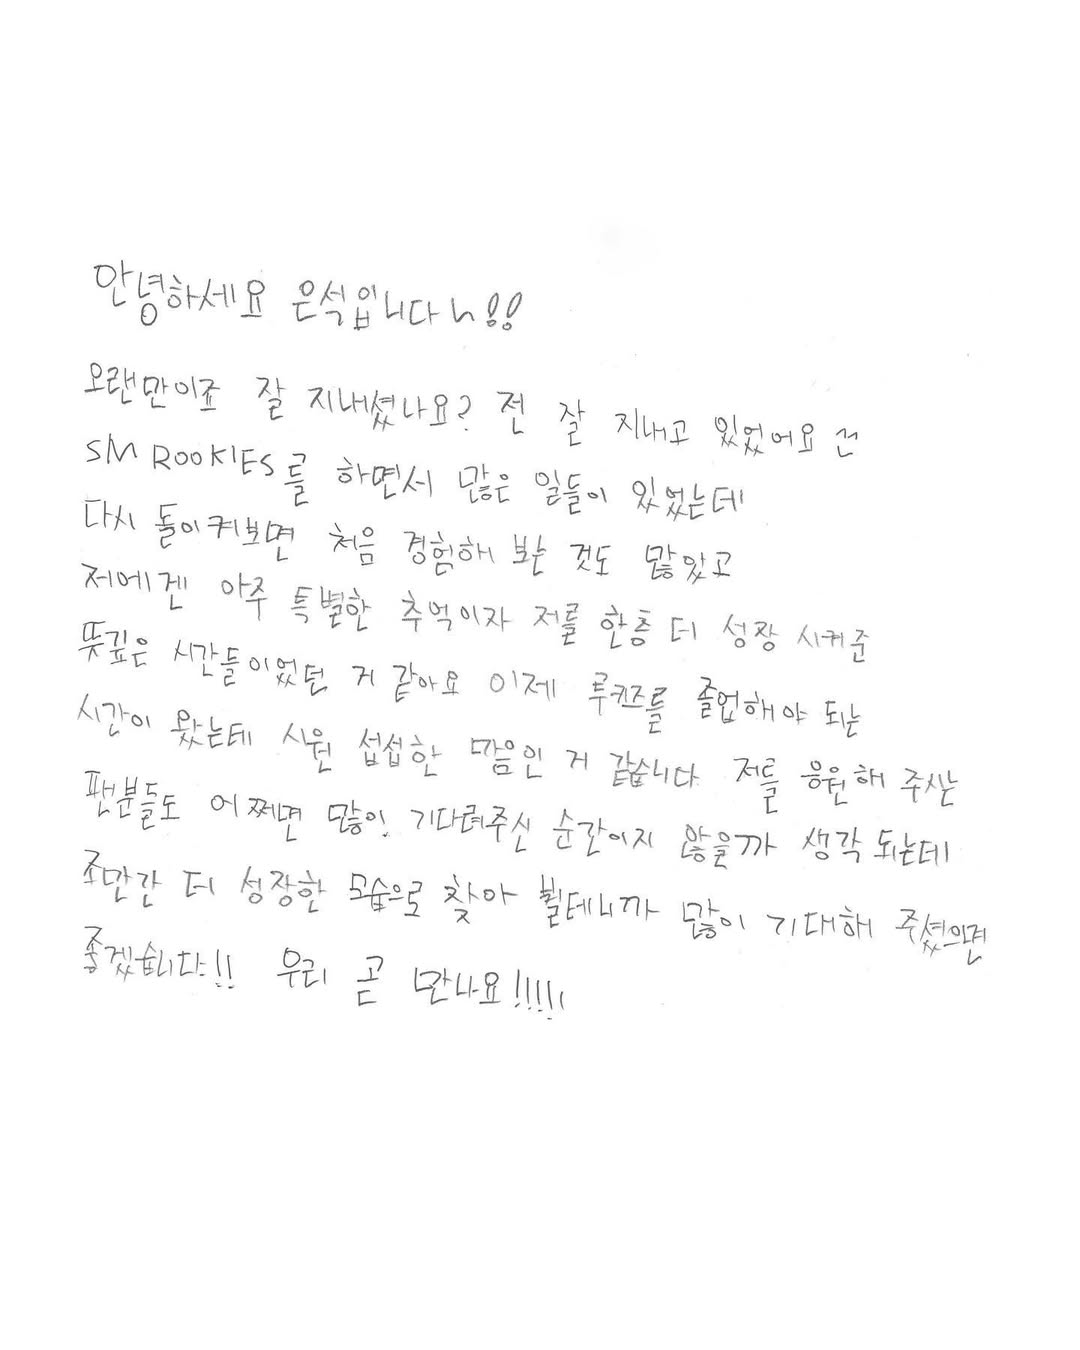 안녕하세요 은석입니다 ㅅ!!
오랜만이죠 잘 지내셨나요? 전 잘 지내고 있었어요
SM ROOKIES를 하면서 많은 일들이 있었는데
다시 돌이켜보면 처음 경험해 보는 것도 많았고
저에겐 아주 특별한 추억이자 저를 한층 더 성장 시켜준
뜻깊은 시간들이었던 거 같아요 이제 루키즈를 졸업해야 되는
시간이 왔는데 시원 섭섭한 마음인 거 같습니다 저를 응원해 주시는
팬분들도 어쩌면 많이 기다려주신 순간이지 않을까 생각 되는데
조만간 더 성장한 모습으로 찾아 뵐테니까 많이 기대해 주셨으면
좋겠습니다!! 우리 곧 만나요!!!!!